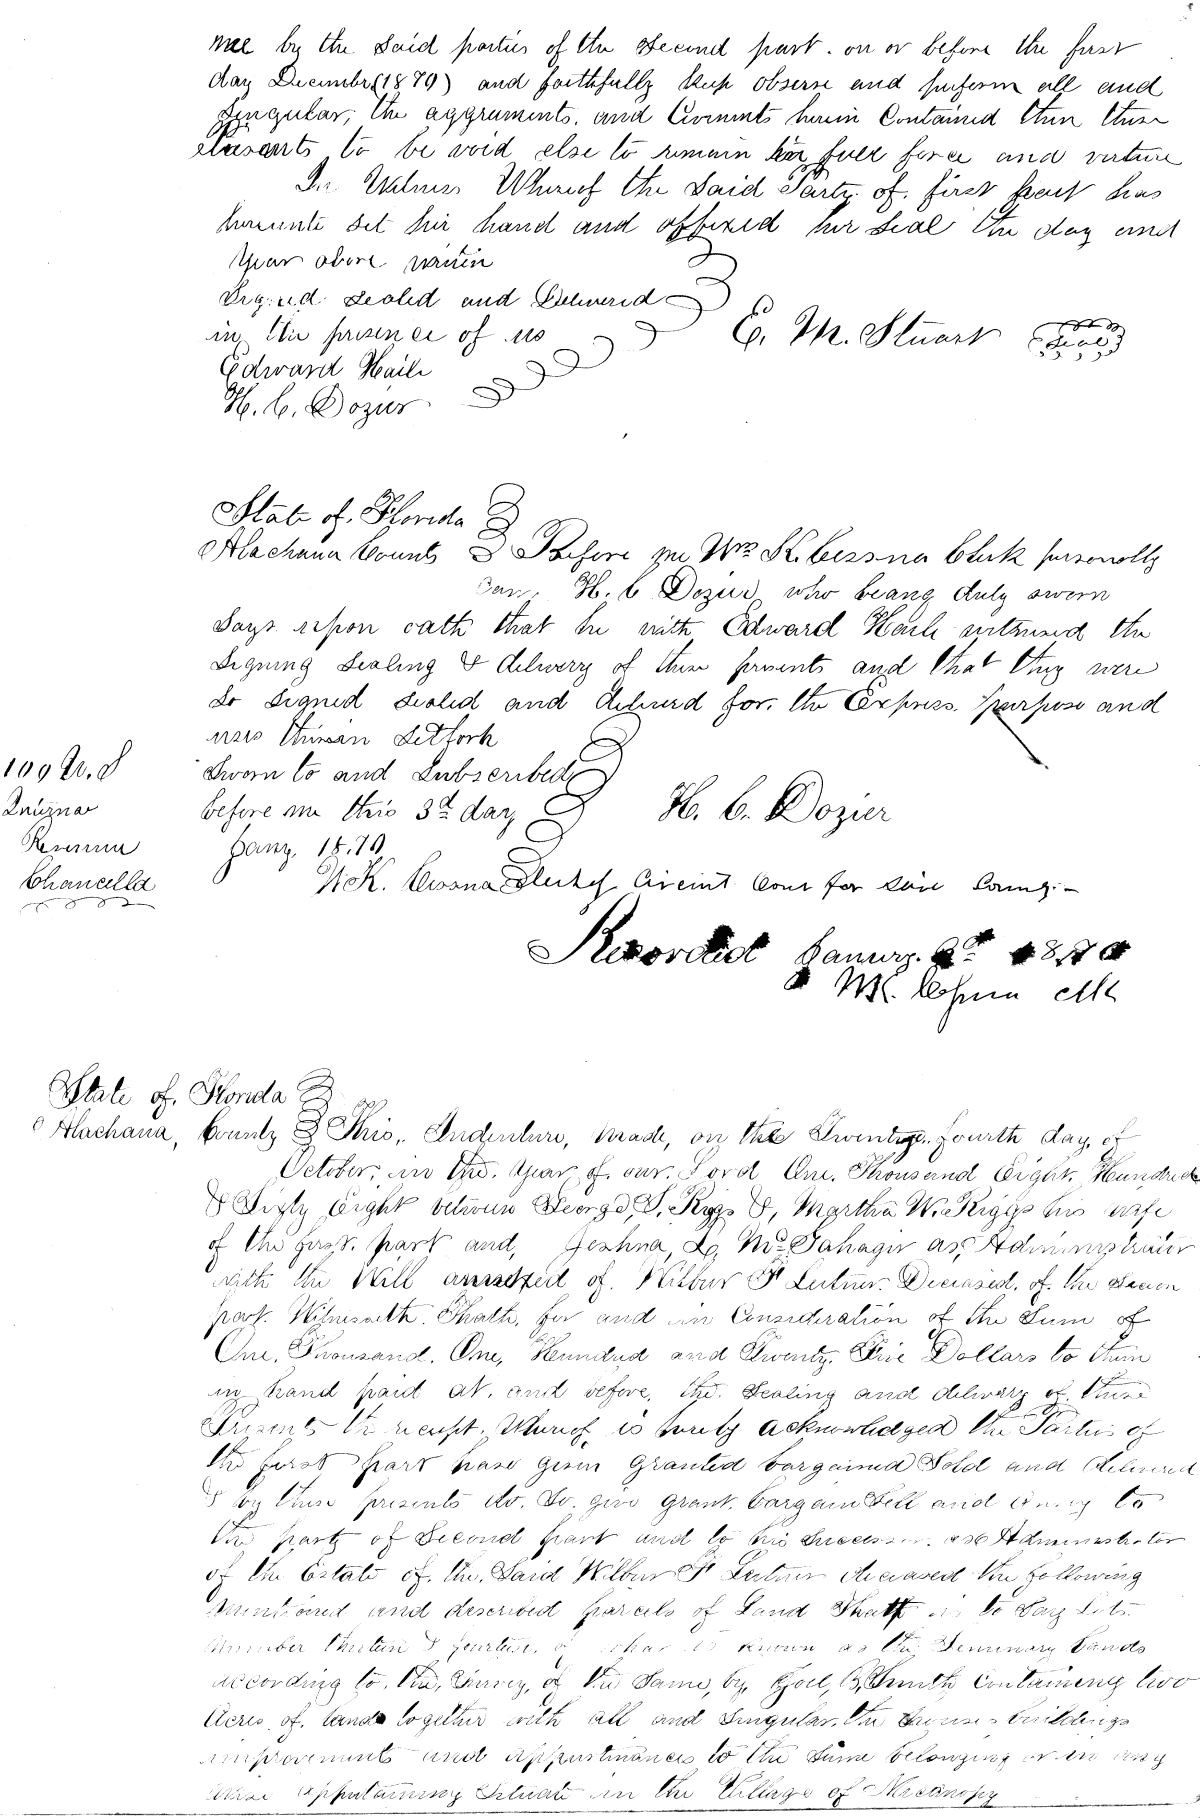 me by the Said parties of the Second part. on or before the first
day December (1879) and faithfully keep observe and perform all and
Singular, the aggruments. and Covenants herein Contained then these
presents to be void else to remain in full force and virtue
In Witness Whereof the Said Party of. first part has
hereunto set his hand and affixed her Seal the day and
Year above written
Signed. Sealed and Delivered
in the presence of us
E. M. Stuart Seal
Edward Haile
H. C. Dozier
State of. Florida
Alachana County Before me Wm K. Cessna Clerk personally
H. C Dozier who beang duly sworn
Says upon oath that he with Edward Haile witnessed the
Signing Sealing & delivery of these presents and that they were
So Signed Sealed and delivered for. the Express. purpose and
uses therein Setforth
Sworn to and Subscribed
before me this 3d day
H. C. Dozier
Jany. 1879
W K. Cessna Clerk of Circuit Cour for Said County
100
Revenue
Chancella
Recorded January.
W K. Cessna clk
State of. Florida
Alachana, County This,. Indenture, Made, on the Twenty. fourth day, of
October, in the. Year of. our. Lord One. Thousand Eight. Hundred
& Sixty Eight between George S. Riggs &, Martha W. Riggs his wife
of the first. part and, Joshua, Administrator
with the Will annexed of. Wilbur F Lutner. Deceased, of. the Secon
part. Witnesseth. Thath, for and in Consideration of the Sum of
One, Thousand. One, Hundred and Twenty. Five Dollars to them
in hand paid at. and before, the. Sealing and delivary of. these
Presents the receipt. Whereof, is hereby acknowledged the Parties of
the first part have given granted bargained Sold and delivered
& by these presents do. give grant. bargain Sell and convey to
the party of Second part and to his Successor. as Administrator
of the Estate of. the. Said Wilbur F Lutner deceased the following
mentioned and described parcels of Land Thatt is to Say Lots.
Number thirteen & fourteen. of what is known as the Seminary Lands
according to, the, Survey, of the Same, by, Joel, B, Smith Containing two
Acres, of. lands together with all and Singular, the houses buildings
improvements and appurtinances to the Same belonging or in any
wise appertaining Situate in the Village of Micanopy